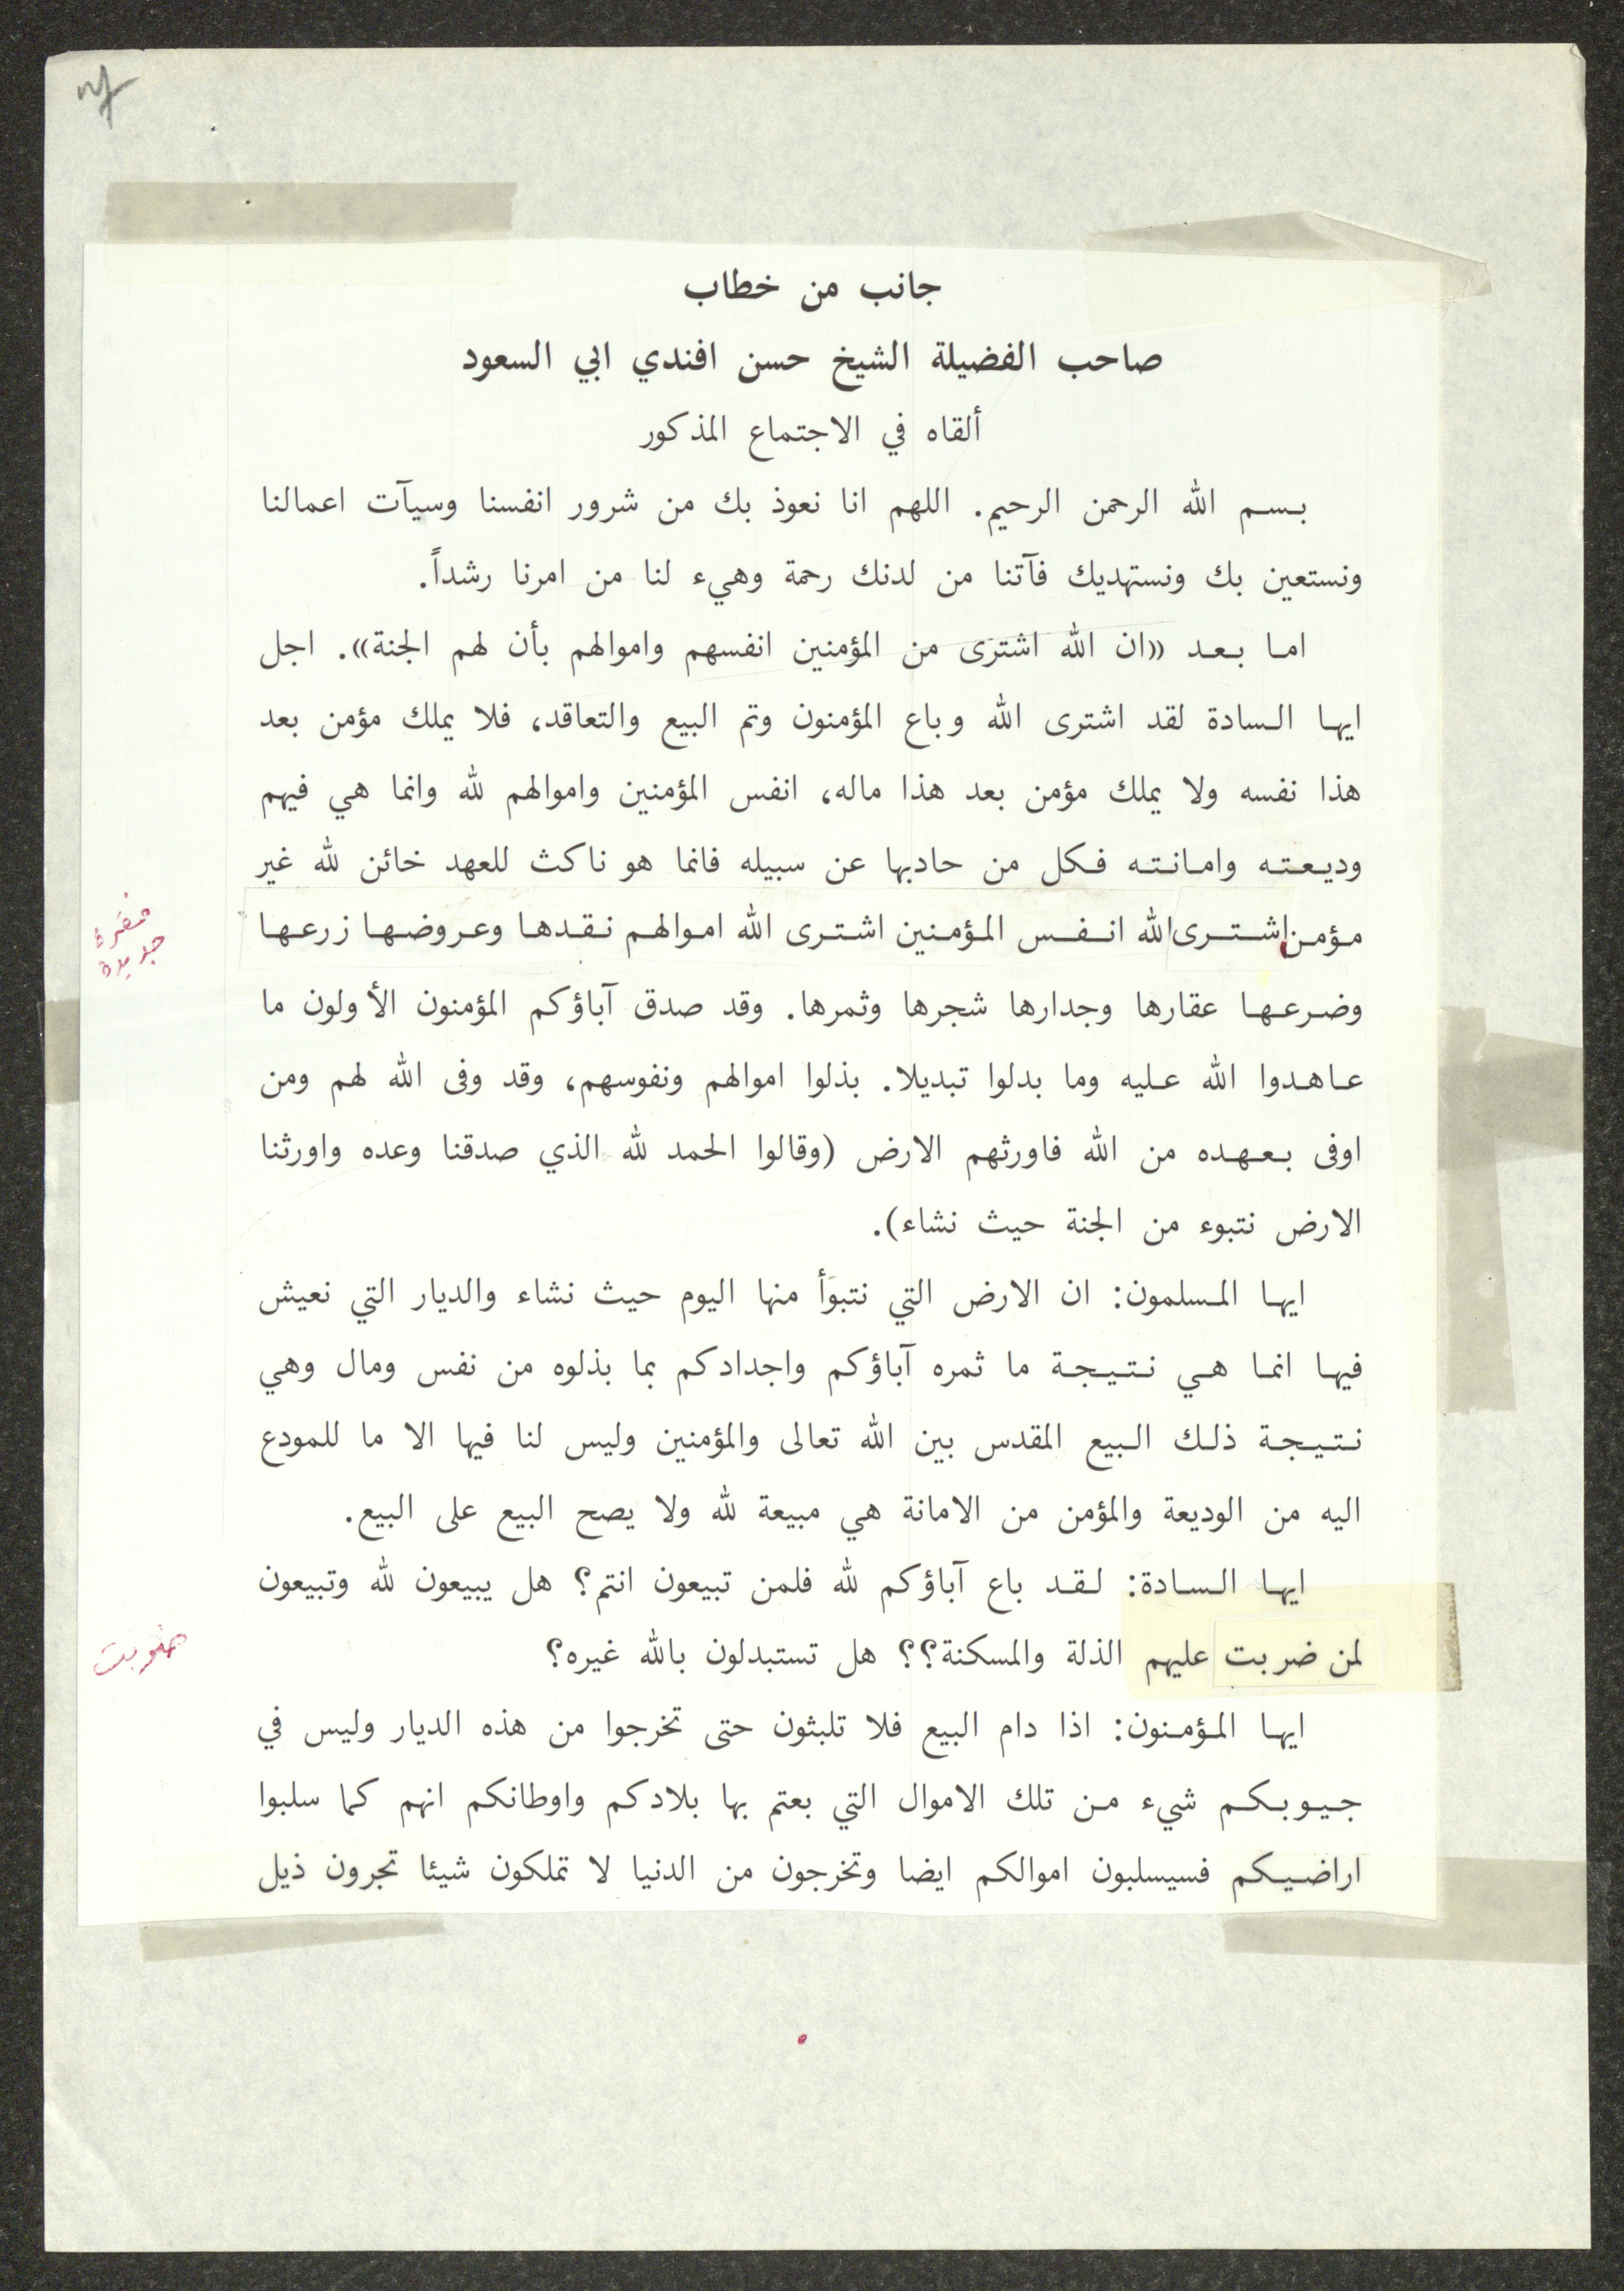 جانب من خطاب
صاحب الفضيلة الشيخ حسن افندي ابي السعود
ألقاه في الاجتماع المذكور
بسم الله الرحمن الرحيم. اللهم انا نعوذ بك من شرور انفسنا وسيآت اعمالنا
ونستعين بك ونستهديك فآتنا من لدنك رحمة وهيء لنا من امرنا رشداً.
اما بعد «ان الله اشترى من المؤمنين انفسهم واموالهم بأن لهم الجنة». اجل
ايها السادة لقد اشترى الله وباع المؤمنون وتم البيع والتعاقد، فلا يملك مؤمن بعد
هذا نفسه ولا يملك مؤمن بعد هذا ماله، انفس المؤمنين واموالهم لله وانما هي فيهم
وديعته وامانته فكل من حادبها عن سبيله فانما هو ناكث للعهد خائن لله غير
مؤمن اشترى الله انفس المؤمنين اشترى الله اموالهم نقدها وعروضها زرعها
فقرة
جديدة
وضرعها عقارها وجدارها شجرها وثمرها. وقد صدق آباؤكم المؤمنون الأولون ما
عاهدوا الله عليه وما بدلوا تبديلا. بذلوا اموالهم ونفوسهم، وقد وفى الله لهم ومن
اوفى بعهده من الله فاورثهم الارض (وقالوا الحمد لله الذي صدقنا وعده واورثنا
الارض نتبوء من الجنة حيث نشاء).
ايها المسلمون: ان الارض التي نتبوأ منها اليوم حيث نشاء والديار التي نعيش
فيها انما هي نتيجة ما ثمره آباؤكم واجدادكم بما بذلوه من نفس ومال وهي
نتيجة ذلك البيع المقدس بين الله تعالى والمؤمنين وليس لنا فيها الا ما للمودع
اليه من الوديعة والمؤمن من الامانة هي مبيعة لله ولا يصح البيع على البيع.
ايها السادة: لقد باع آباؤكم لله فلمن تبيعون انتم؟ هل يبيعون لله وتبيعون
لمن ضربت عليهم الذلة والمسكنة؟؟ هل تستبدلون بالله غيره؟
ضربت
ايها المؤمنون: اذا دام البيع فلا تلبثون حتى تخرجوا من هذه الديار وليس في
جيوبكم شيء من تلك الاموال التي بعتم بها بلادكم واوطانكم انهم كما سلبوا
اراضيكم فسيسلبون اموالكم ايضا وتخرجون من الدنيا لا تملكون شيئا تجرون ذيل